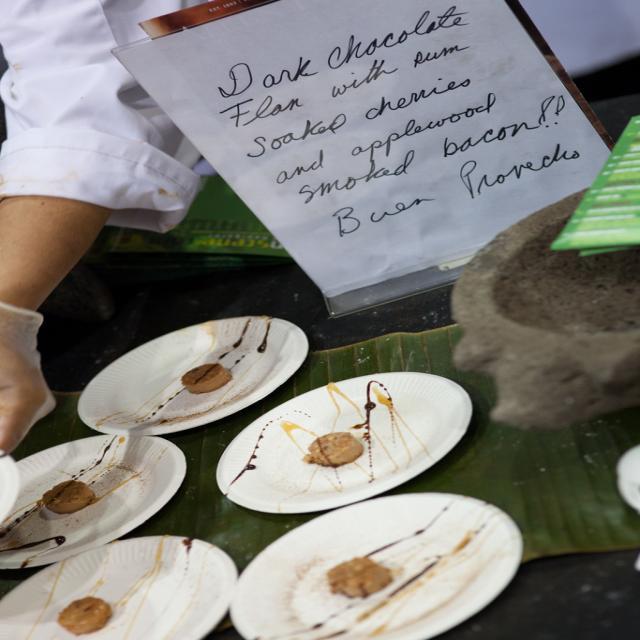 Dark chocolate
Flan with rum
soaked cherries
and applewood
smoked bacon!!
Buen Provecho